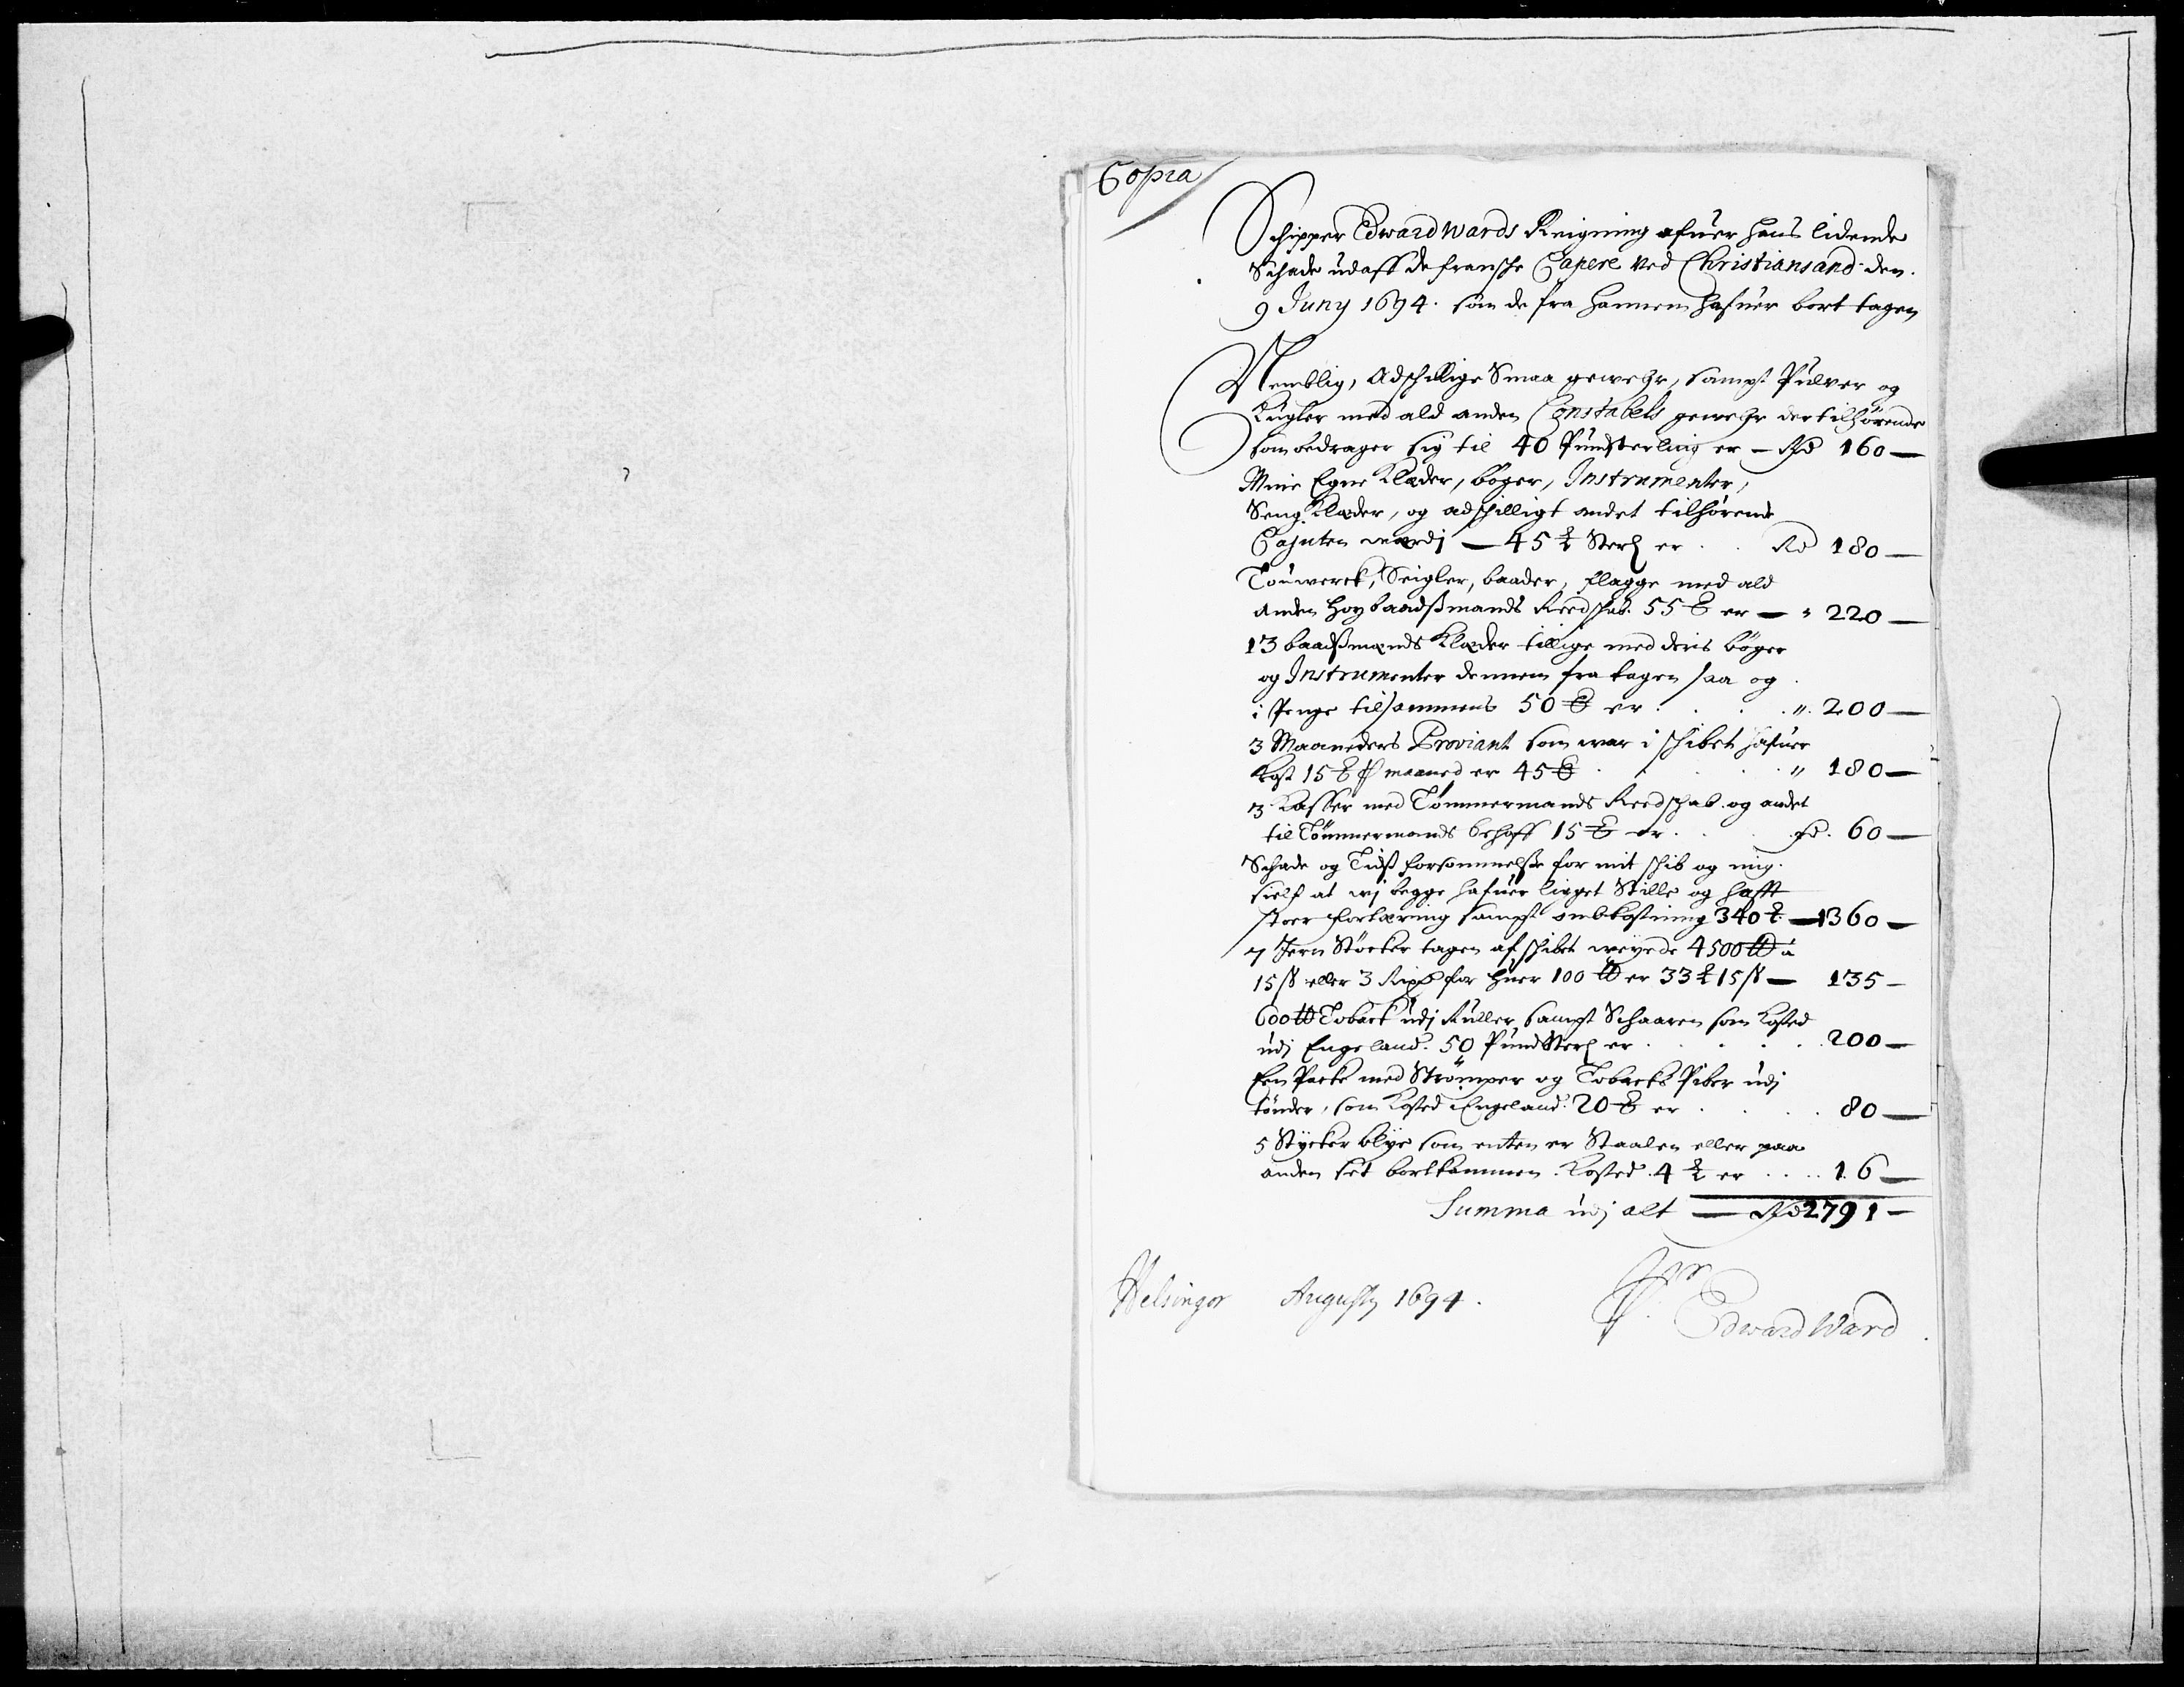 Copia
Schipper Edward Wards Reigning ofuer hans lidende
Schade udaff de fransche Capere ved Christiansand den
9 Juny 1694. som de fra hannem hafuer bort tagen
Nemblig, Adschillige Smaa gewehr, sampt Pulver og
Kugler med ald anden Constabels gewehr dertilhørende
som bedrager sig til 40 Pundsterling er – Rd 160 —
Mine Egne Klæder, bøger, Instrumenter,
Seng Klæder, og adschilligt andet tilhørende
Cajuten værdj — 45 £ Sterl er . . Rd 180 —
Touwerck, Seigler, baader, flagge med ald
anden hoybaadsmands Reedschab. 55 £ er — " 220 —
13 baadsmænds Klæder tillige med deris bøger
og Instrumenter dennem fra tagen saa og
i Penge tilsammens 50 £ er . . . " 200 —
3 Maaneders Proviant som war i schibet hafuer
Kost 15 £ p maaned er 45 £ . . . " 180 —
3 Kasser med Tømmermands Reedschab og andet
til Tømmermands behoff 15 £ er . . Rd. 60 —
Schade og Tids forsømmelse for mit schib og mig
sielf at wj begge hafuer ligget Stille og hafft
stoer fortæring sampt ombkostning 340 £. — 1360 —
7 Jern Støcker tagen af schibet weyede 4500 ℔ a
15 ß eller 3 Rixd for huer 100 ℔ er 33 £ 15 ß — 135 —
600 ℔ Toback udj Ruller sampt Schaaren som Kosted
udj Engeland. 50 Pund Sterl er . . . . 200 —
Een Packe med Strømper og Tobacks Piber udj
tønder, som Kosted i Engeland. 20 £ er . . . . 80 —
5 Stycker blye som enten er Staalen eller paa
anden set bortkommen. Kosted. 4 £ er . . . . 16 —
Summa udj alt — Rd 2791 —
Helsingør Augusty 1694.
Edward Ward